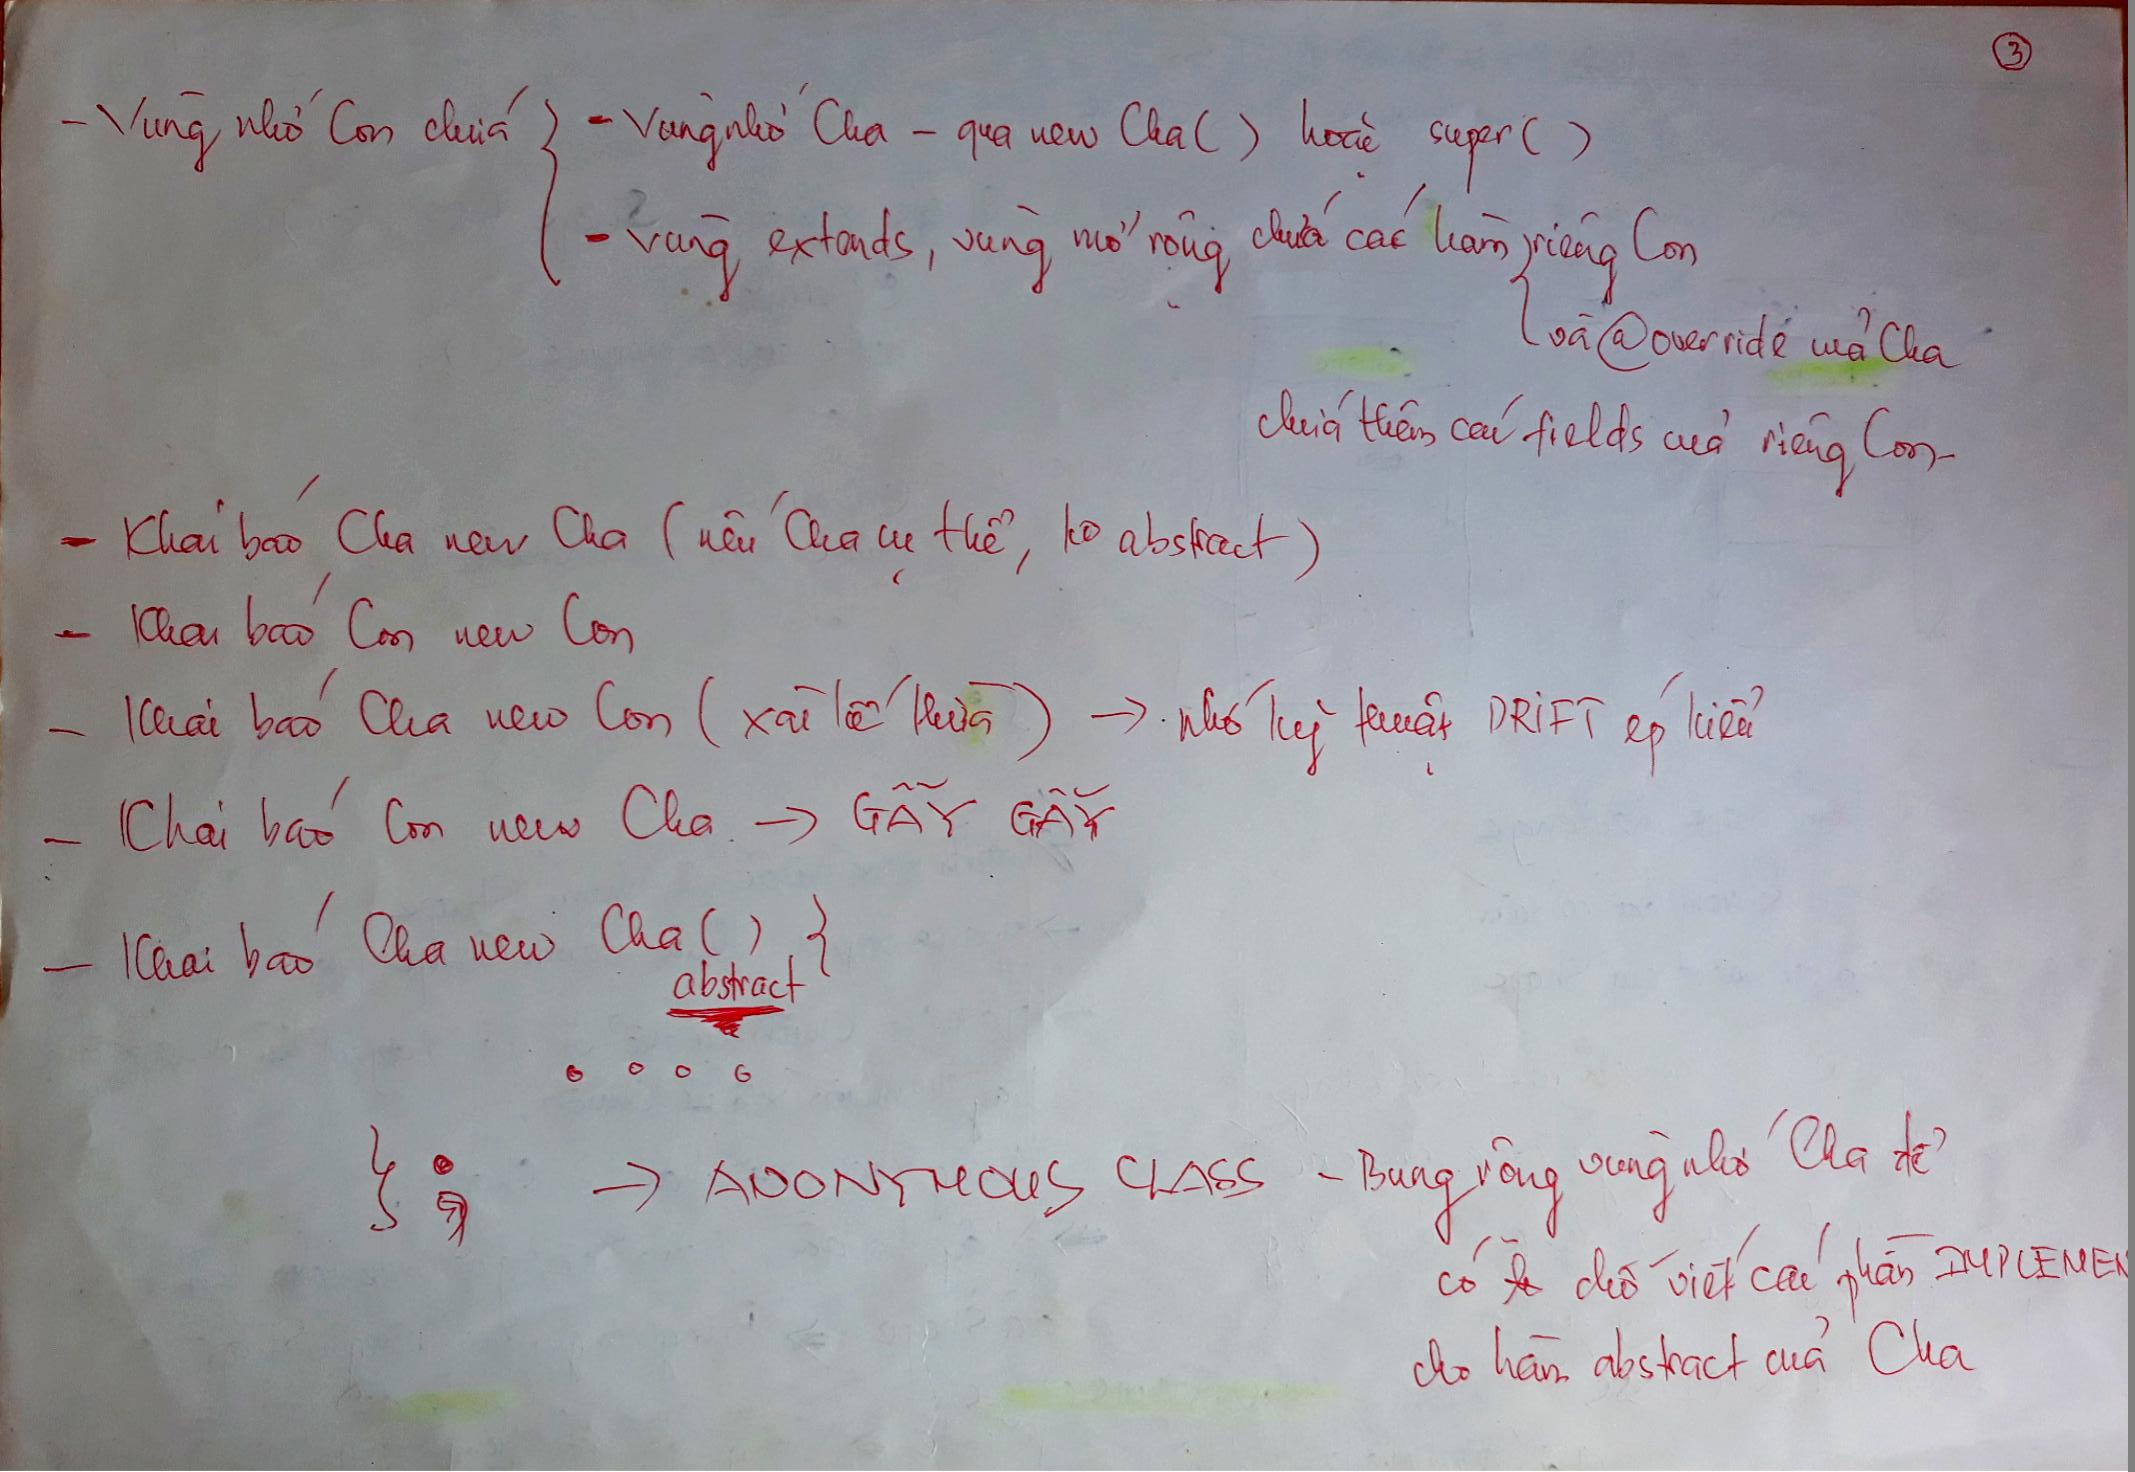 ③
- Vùng nhớ Con chứa { - Vùng nhớ Cha - qua new Cha() hoặc super()
- vùng extends, vùng mở rộng chứa các hàm riêng Con
và @override của Cha
chứa thêm các fields của riêng Con
- Khai báo Cha new Cha (nếu Cha cụ thể, ko abstract)
- Khai báo Con new Con
- Khai báo Cha new Con (xài kế thừa) → nhớ kỹ thuật DRIFT ép kiểu
- Khai báo Con new Cha → GÃY GÃY
- Khai báo Cha new Cha() {
abstract
} ; → ANONYMOUS CLASS - Bung rộng vùng nhớ Cha để
có chỗ viết các phần IMPLEMEN
cho hàm abstract của Cha